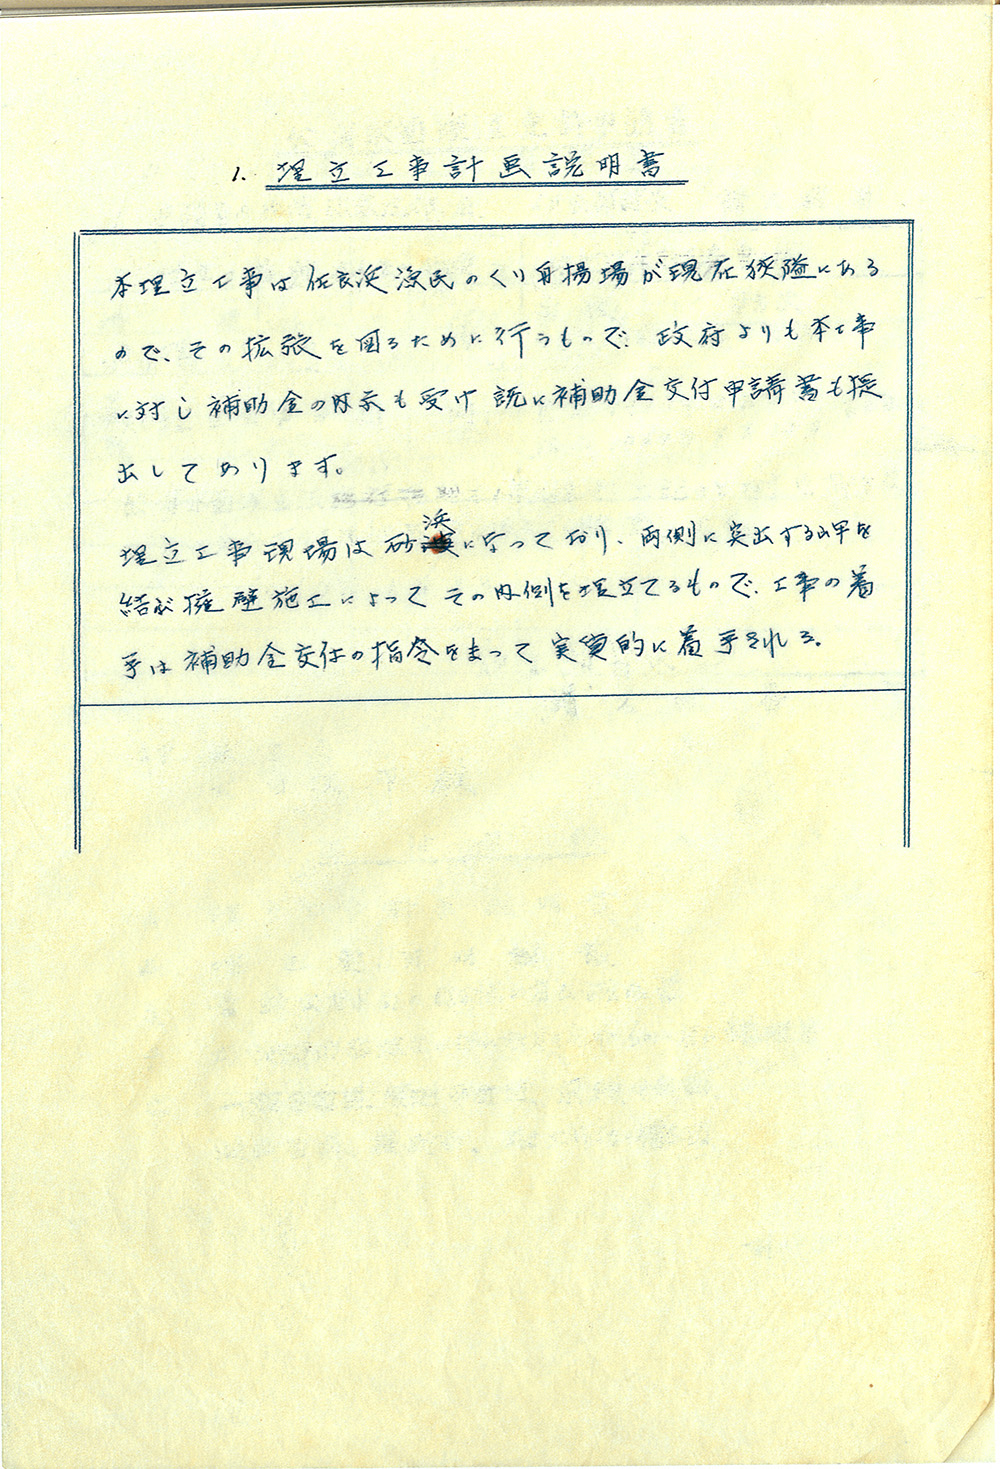 1. 埋立工事計画説明書
本埋立工事は佐良浜漁民のくり舟揚場が現在狭隘にある
ので、その拡張を図るために行うもので、政府よりも本工事
に対し補助金の内示も受け既に補助金交付申請書も提
出してあります。
埋立工事現場は砂浜になっており、両側に突出する岬を
結ぶ擁壁施工によってその内側を埋立てるもので、工事の着
手は補助金交付の指令をまって実質的に着手される。